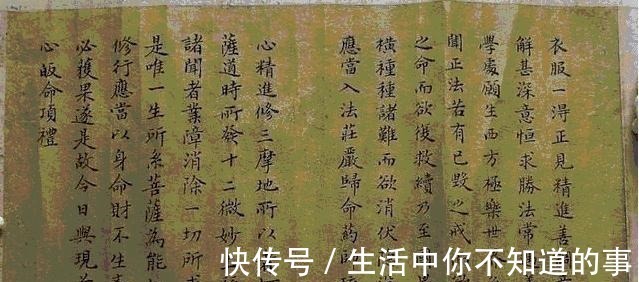 衣服一淂正見精進善
解甚深意恒求勝法常
學處願生西方極樂世
聞正法若有已毀之戒
之命而欲復救續乃至
橫種種諸難而欲消伏
應當入法莊嚴歸命藥師
心精進修三摩地所以
薩道時所發十二微妙
諸聞者業障消除一切所
是唯一生所系菩薩為能
修行應當以身命財不生
必獲果遂是故今日與現
心皈命頂禮
快传号 / 生活中你不知道的事